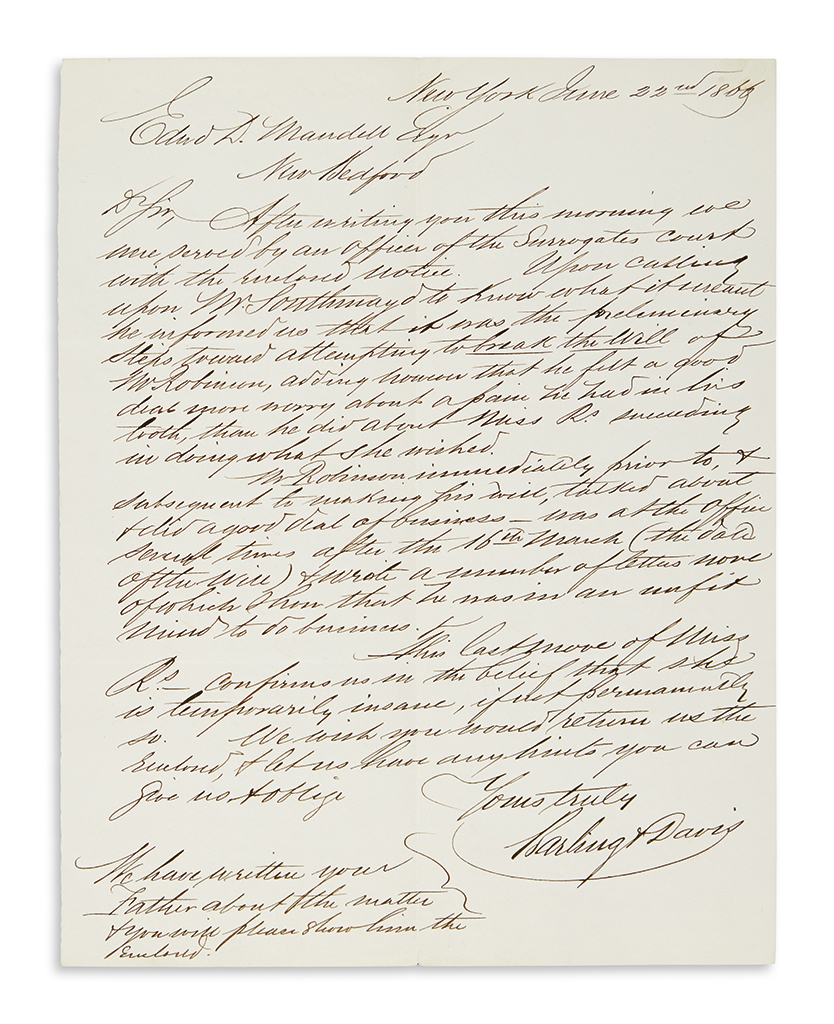 New York June 22nd 1866
Edwd D. Mandell Esqr
New Bedford
Dr Sir, After writing you this morning we
were served by an officer of the Surrogates court
with the enclosed notice. Upon calling
upon Mr Southmayd to know what it meant
he informed us that it was the preliminary
steps toward attempting to break the Will of
Mr Robinson, adding however that he felt a good
deal more worry about a pain he had in his
tooth, than he did about Miss Rs succeeding
in doing what she wished.
Mr Robinson immediately prior to, &
subsequent to making his will, talked about
& did a good deal of business – was at the office
several times after the 16th March (the date
of the Will) & wrote a number of letters none
of which show that he was in an unfit
mind to do business.
This last move of Miss
Rs – confirms us in the belief that she
is temporarily insane, if not permanently
so. We wish you would return us the
Enclosed, & let us have any hints you can
give us & oblige
Yours truly
Barling & Davis
We have written your
Father about the matter
& you will please show him the
Enclosed.